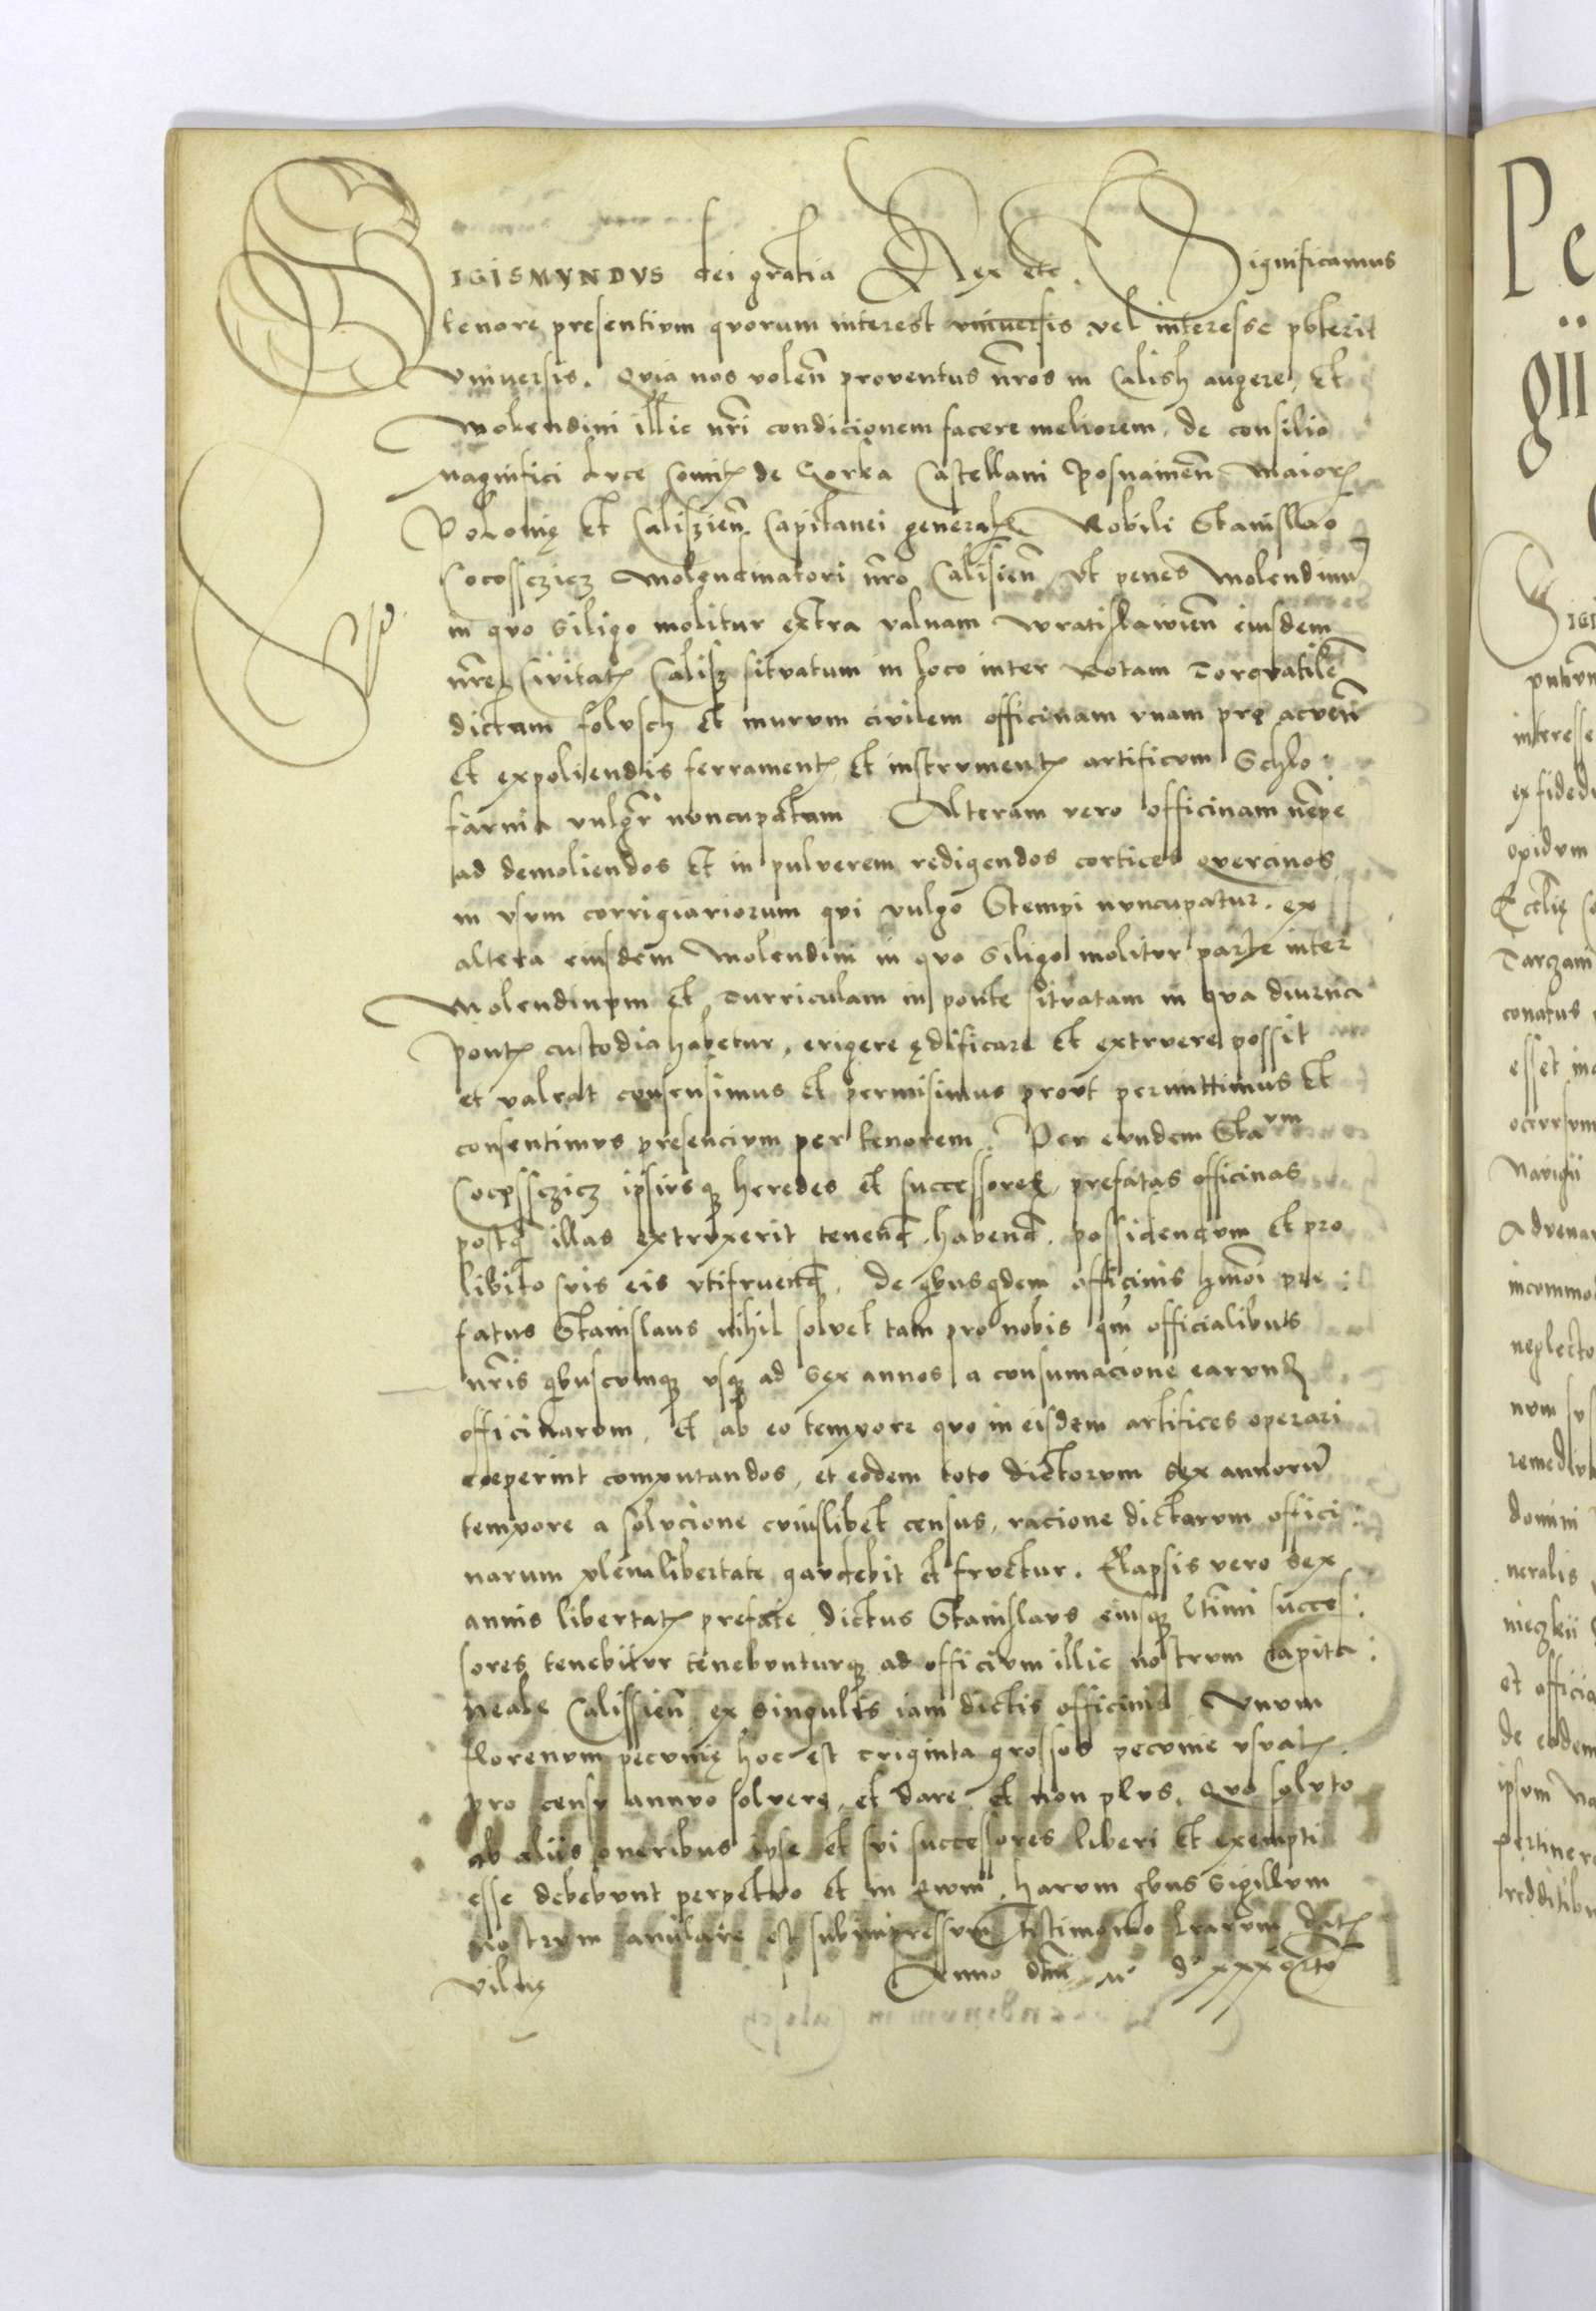 SIGISMVNDVS dei gratia Rex etc. Significamus
tenore presentium quorum interest universis vel interesse poterit
vniuersis. Quia nos volen̄ proventus nr̄os in Calish augere, et
Molendini illic nr̄i condicionem facere meliorem, de consilio
magnifici Luce Comitꝭ de Gorka Castellani Posnanien̄ Maiorꝭ
Polonię et Calisien̄ Capitanei generalꝭ Nobili Stanislao
Cocossczicz Molendinatori nr̄o Calisien̄ vt penes Molendinū
in quo siligo molitur extra valuam Wratislawien̄ eiusdem
nr̄e Civitatꝭ Calisz situatum in loco inter Rotam Torquatile
dictam folusch et murum civilem officinam vnam pro acuen̄
et expoliendis ferramentꝭ et instrumentꝭ artificum Schlo
farnia vulgr̄ nuncupatam Alteram vero officinam nēpe
ad demoliendos et in pulverem redigendos cortices quercinos
in vsum corrigiariorum qui vulgo Stempi nuncupatur. ex
altera eiusdem Molendini in quo siligo molitur parte inter
Molendinum et Turriculam in ponte situatam in qua diurna
pontꝭ custodia habetur, erigere ędificare et extruere possit
et valeat consensimus et permisimus prout permittimus et
consentimus presencium per tenorem. Per eundem Staum
Cocossczicz ipsiusqꝫ heredes et successores, prefatas officinas
postqꝫ illas extruxerit tenend̄, habend̄. possidendum et pro
libito suis eis vtifruend̄. De qbusqdem officinis hmōi pre:
fatus Stanislaus nihil solvet tam pro nobis qm̄ officialibus
nr̄is qbuscumqꝫ vsqꝫ ad sex annos a consumacione earund̄
officinarum, et ab eo tempore quo in eisdem artifices operari
ceperint computandos, et eodem toto dictorum sex annorū
tempore a solucione cuiuslibet census, racione dictarum offici:
narum plena libertate gaudebit et fruetur. Elapsis vero sex
annis libertatꝭ prefate dictus Stanislaus eiusqꝫ ltīmi succes:
sores tenebitur tenebunturqꝫ ad officium illic nostrum Capita:
neale Calissien̄ ex singulis iam dictis officinis Vnum
florenum pecunię hoc est triginta grossos pecunie vsualꝭ
pro censu annuo solvere, et dare et non plus. Quo soluto
ab aliis oneribus ipse et sui successores liberi et exempti
esse debebunt perpetuo et in ęvum. harum qbus sigillum
nostrum anulare est subimpressum testimonio lrarum Datꝭ
Vilnę Anno dnī M° d° xxx qrto